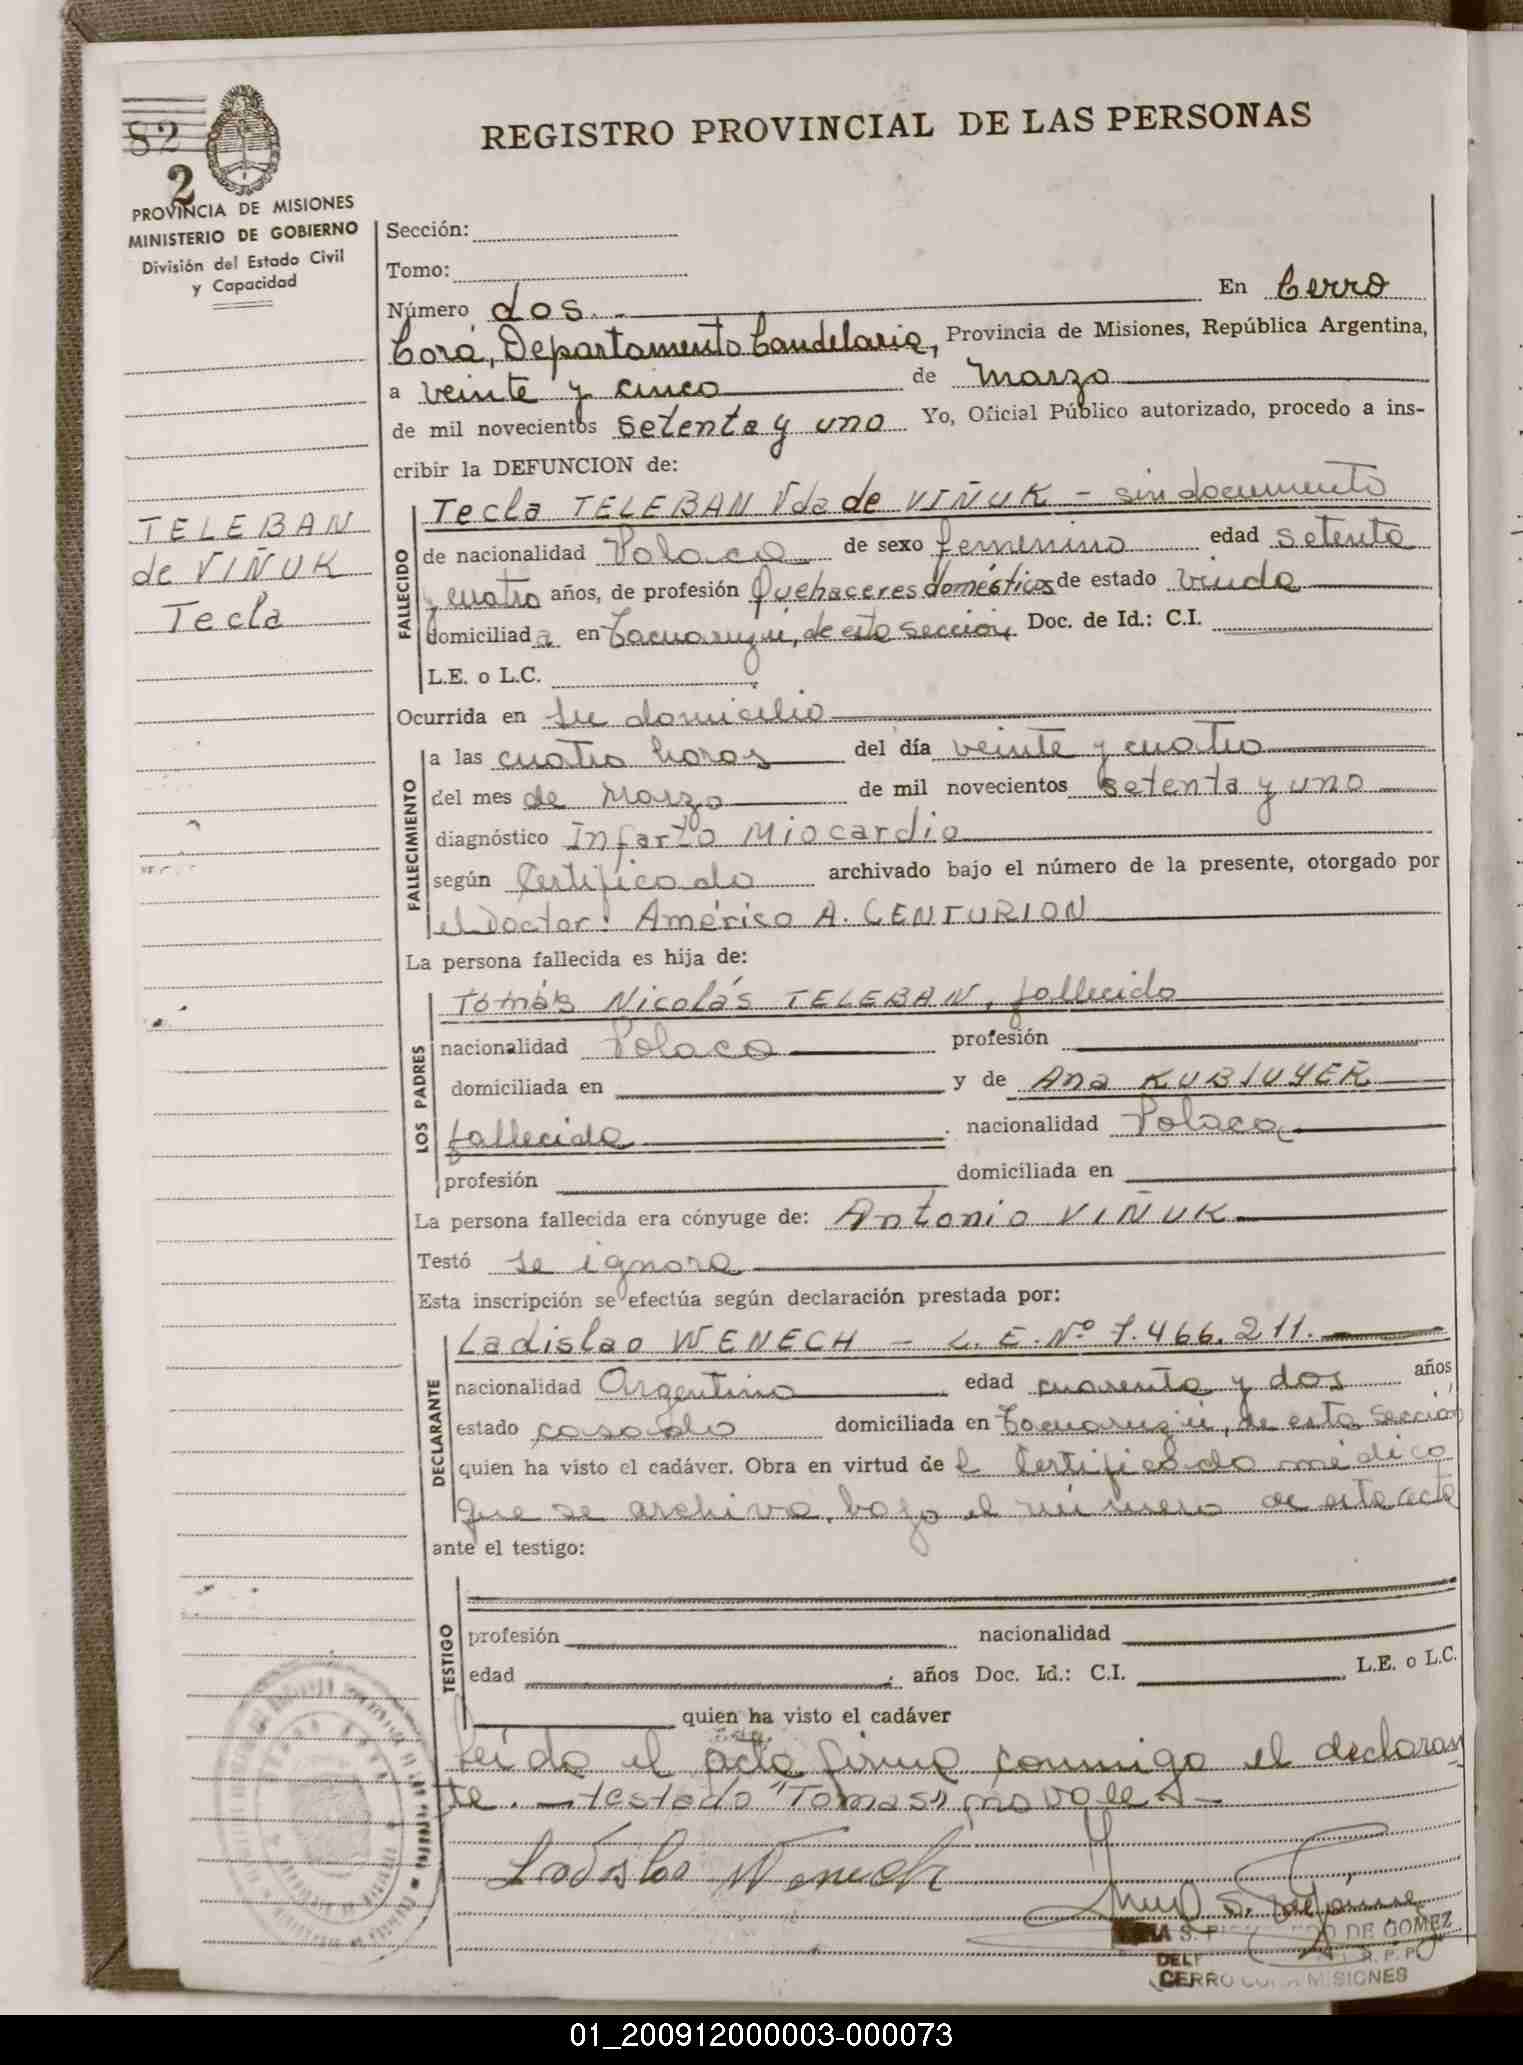 82
2
PROVINCIA DE MISIONES
MINISTERIO DE GOBIERNO
División del Estado Civil
y Capacidad
TELEBAN
de VIÑUK
Tecla
REGISTRO PROVINCIAL DE LAS PERSONAS
Sección:
Tomo:
Número dos.- En Cerro
Corá, Departamento Candelaria, Provincia de Misiones, República Argentina,
a veinte y cinco de Marzo
de mil novecientos setenta y uno Yo, Oficial Público autorizado, procedo a ins-
cribir la DEFUNCION de:
FALLECIDO
Tecla TELEBAN Vda de VIÑUK - sin documento
de nacionalidad Polaca de sexo femenino edad setenta
y cuatro años, de profesión Quehaceres domésticos de estado viuda
domiciliada en Tacuaruzú, de esta sección, Doc. de Id.: C.I.
L.E. o L.C.
Ocurrida en su domicilio
FALLECIMIENTO
a las cuatro horas del día veinte y cuatro
del mes de Marzo de mil novecientos setenta y uno
diagnóstico Infarto Miocardio
según Certificado archivado bajo el número de la presente, otorgado por
el Doctor: Américo A. CENTURION
La persona fallecida es hija de:
LOS PADRES
Tomás Nicolás TELEBAN, fallecido
nacionalidad Polaca profesión
domiciliada en y de Ana KUBIUYER
fallecida nacionalidad Polaca
profesión domiciliada en
La persona fallecida era cónyuge de: Antonio VIÑUK
Testó se ignora
Esta inscripción se efectúa según declaración prestada por:
DECLARANTE
Ladislao WENECH - L.E. Nº 7.466.211.
nacionalidad Argentino edad cuarenta y dos años
estado casado domiciliada en Tacuaruzú, de esta Sección
quien ha visto el cadáver. Obra en virtud de l Certificado médico
que se archiva, bajo el número de esta acta
ante el testigo:
TESTIGO
profesión nacionalidad
edad años Doc. Id.: C.I. L.E. o L.C.
quien ha visto el cadáver
Leida el acta firma conmigo el declaran
te. - testado "Tomas" no vale -
Ladislao Wenech
DE GOMEZ
CERRO CORA MISIONES
01_200912000003-000073